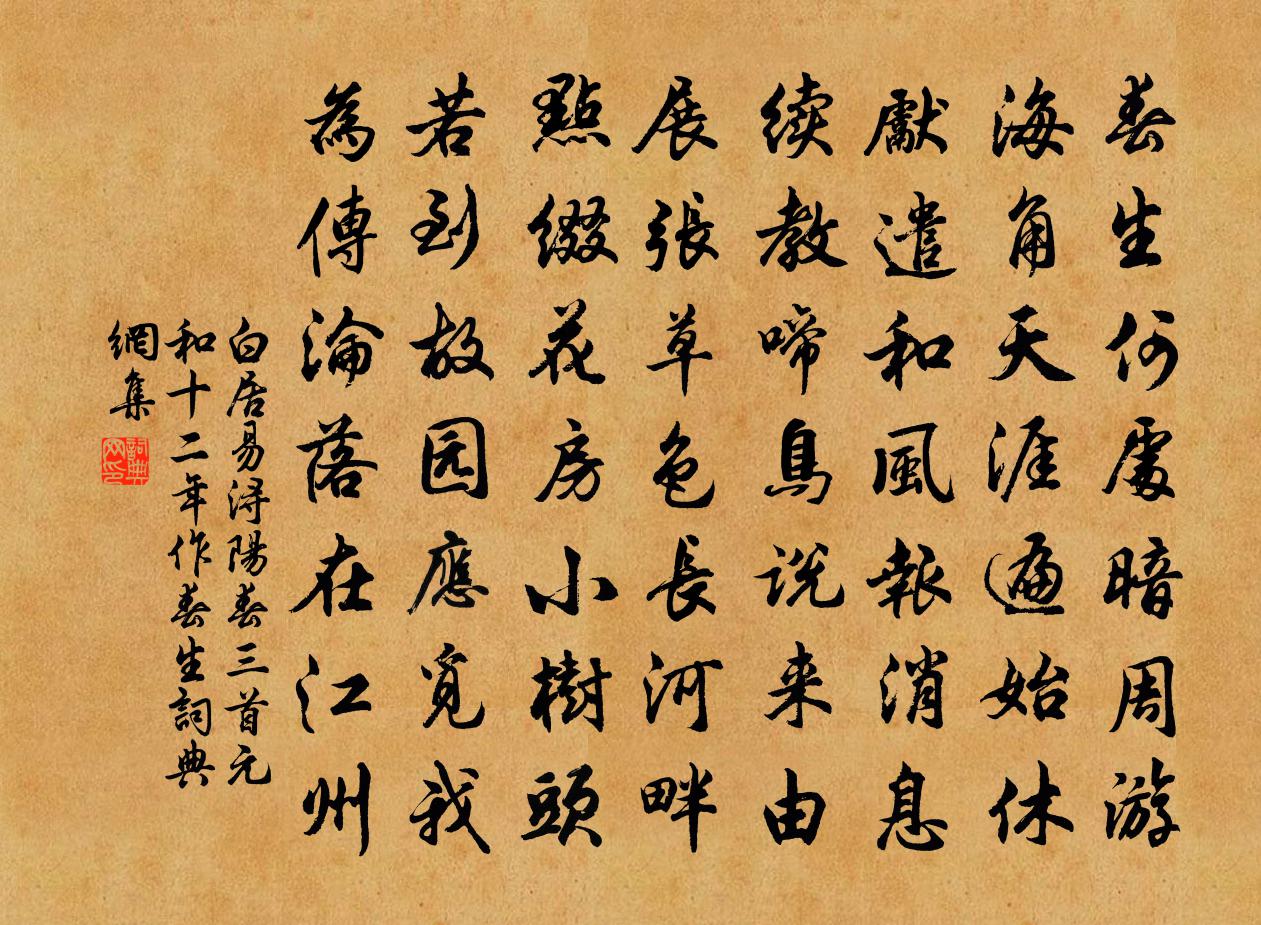 春生何處暗周游
海角天涯遍始休
獻遣和風報消息
续教啼鳥説来由
展張草色長河畔
點綴花房小樹頭
若到故园應覓我
為傳淪落在江州
白居易浔陽春三首元
和十二年作春生詞典
網集
詞典
网印